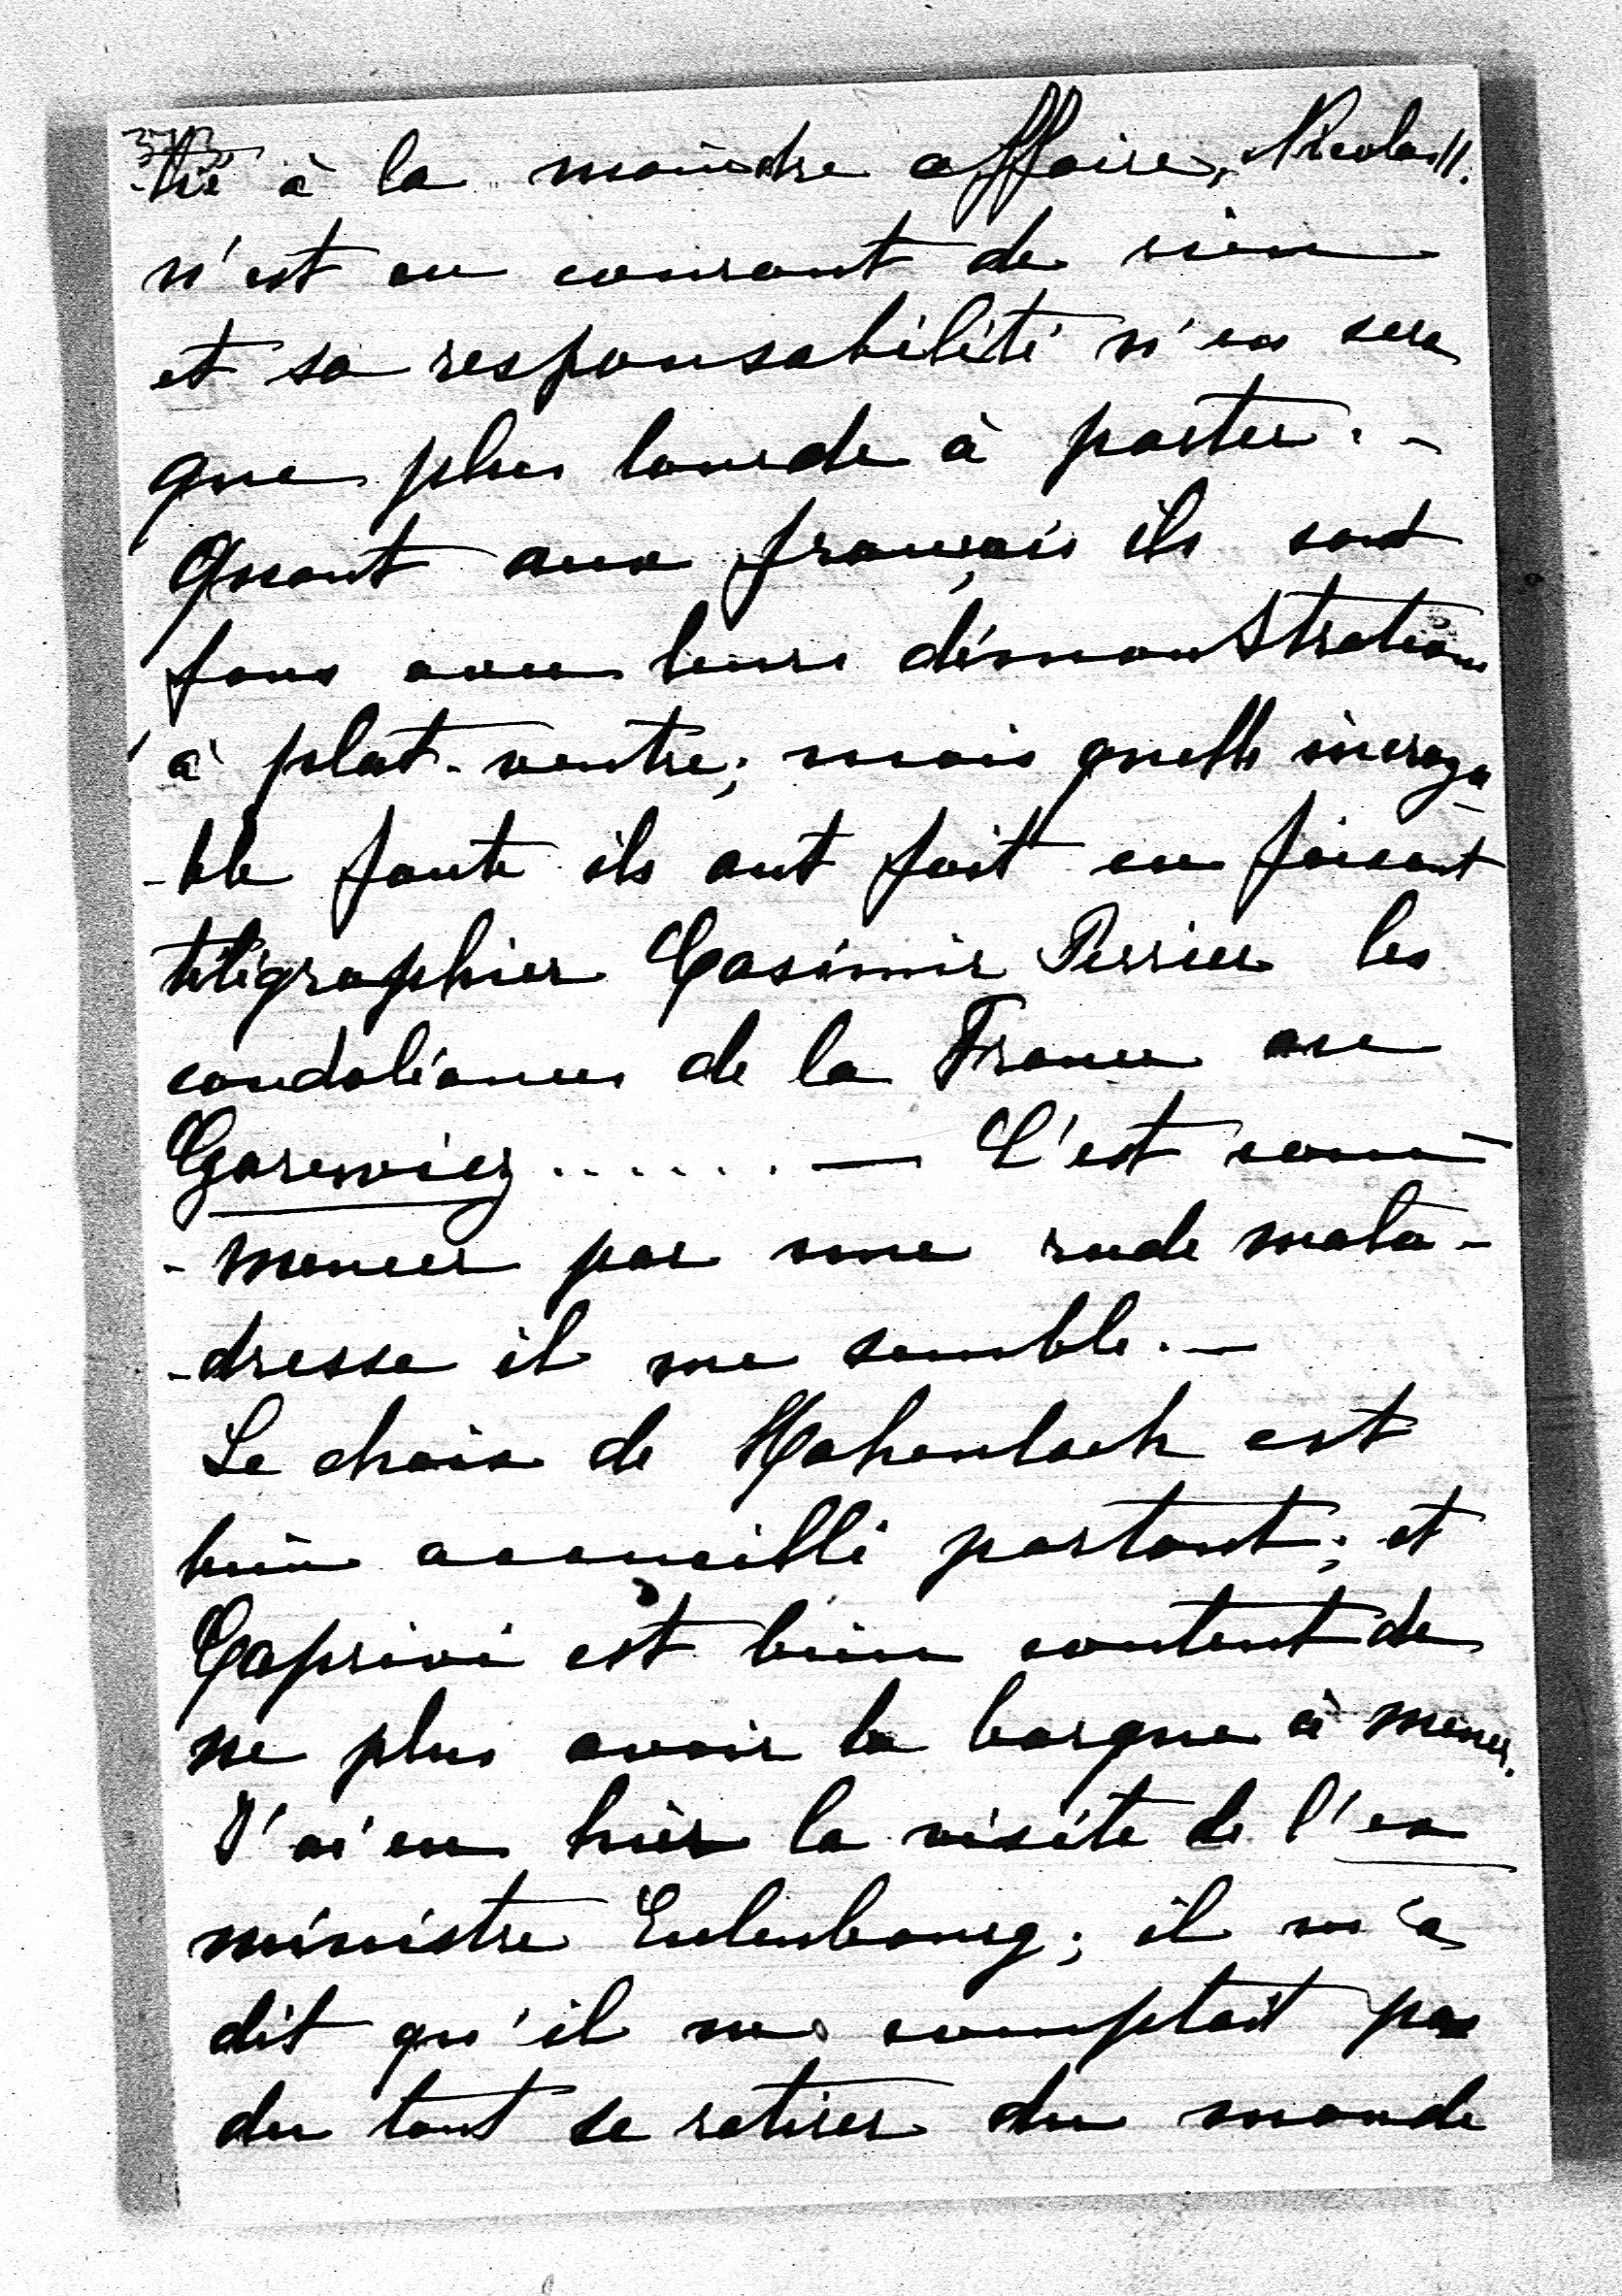 -tié à la moindre affaire, Nicolas II.
n'est au courant de rien
et sa responsabilité n'en sera
que plus lourde à porter. -
Quant aux français ils sont
fous avec leurs démonstrations
à plat-ventre; mais quelle incroya
-ble faute ils ont fait en faisant
télégraphier Casimir Perrier les
condoléances de la France au
Czarewicz ....... — C'est com-
-mencer par une rude mala-
-dresse il me semble. —
Le choix de Hohenloeh est
bien accueilli partout; et
Caprivi est bien content de
ne plus avoir la barque à mener.
J'ai eu hièr la visite de l'ex
ministre Eulenbourg; il m'a
dit qu'il ne comptait pas
du tout se retirer du monde